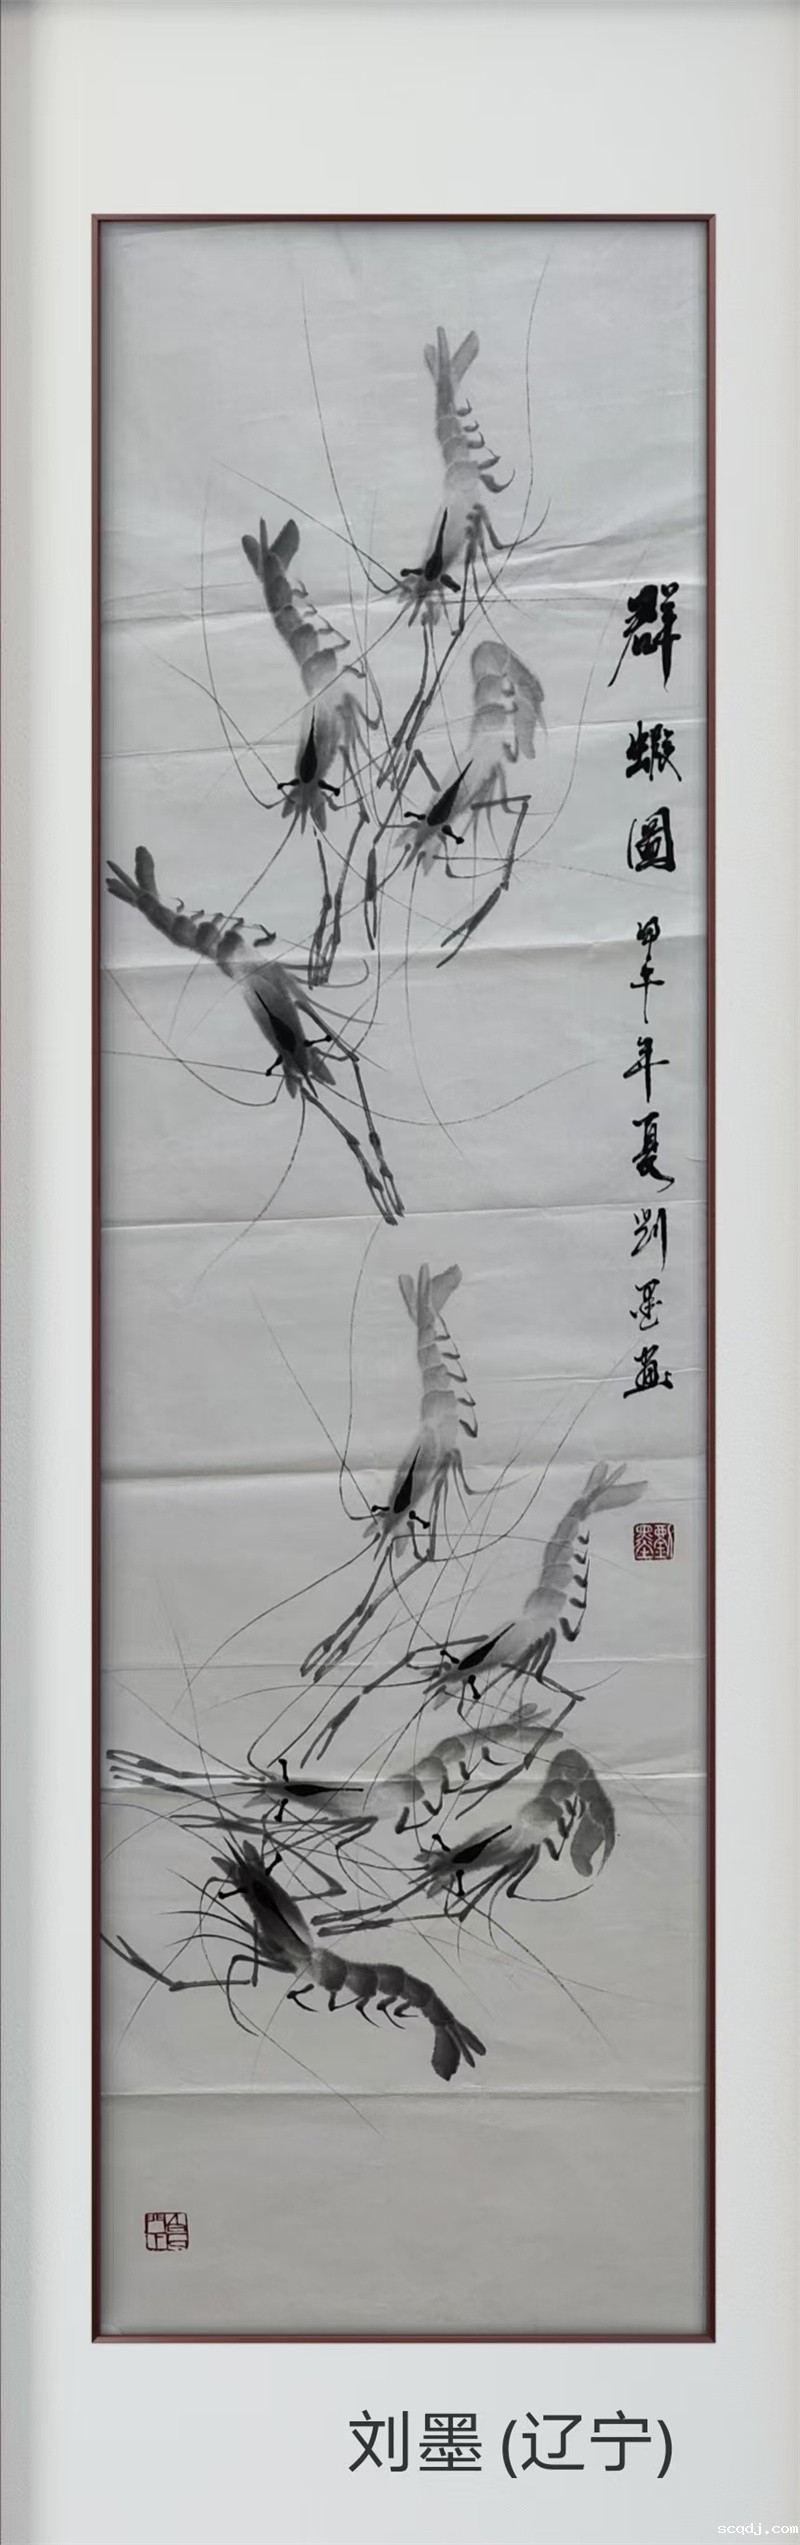 群蝦圖 甲午年夏劉墨畫
劉墨
刘墨 (辽宁)
scqdj.com